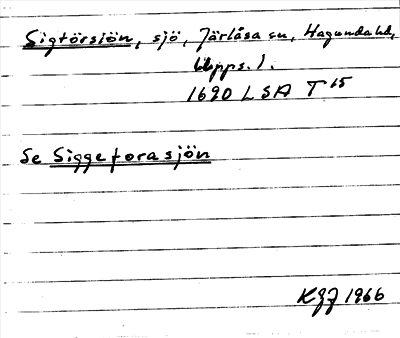 Sigtörsjön, sjö, Järlåsa sn, Hagunda hd,
Upps. l.
1690 LSA T 15
Se Siggeforasjön
KGJ 1966